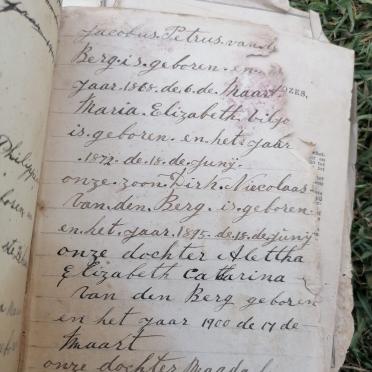 Jacobus Petrus van de
Berg is geboren en
Jaar 1868. de 6. de Maart
Maria Elizabeth
is geboren. en het jaar
.1872. de. 18. de Junij.
onze. zoon. Dirk. Nicolaas
van. den. Berg. is. geboren.
en. het. jaar. 1895. de. 18. de. Junij
onze dochter Alettha
Elizabeth Catharina
van den Berg geboren
en het jaar 1900 de 17 de
Maart
onze dochter